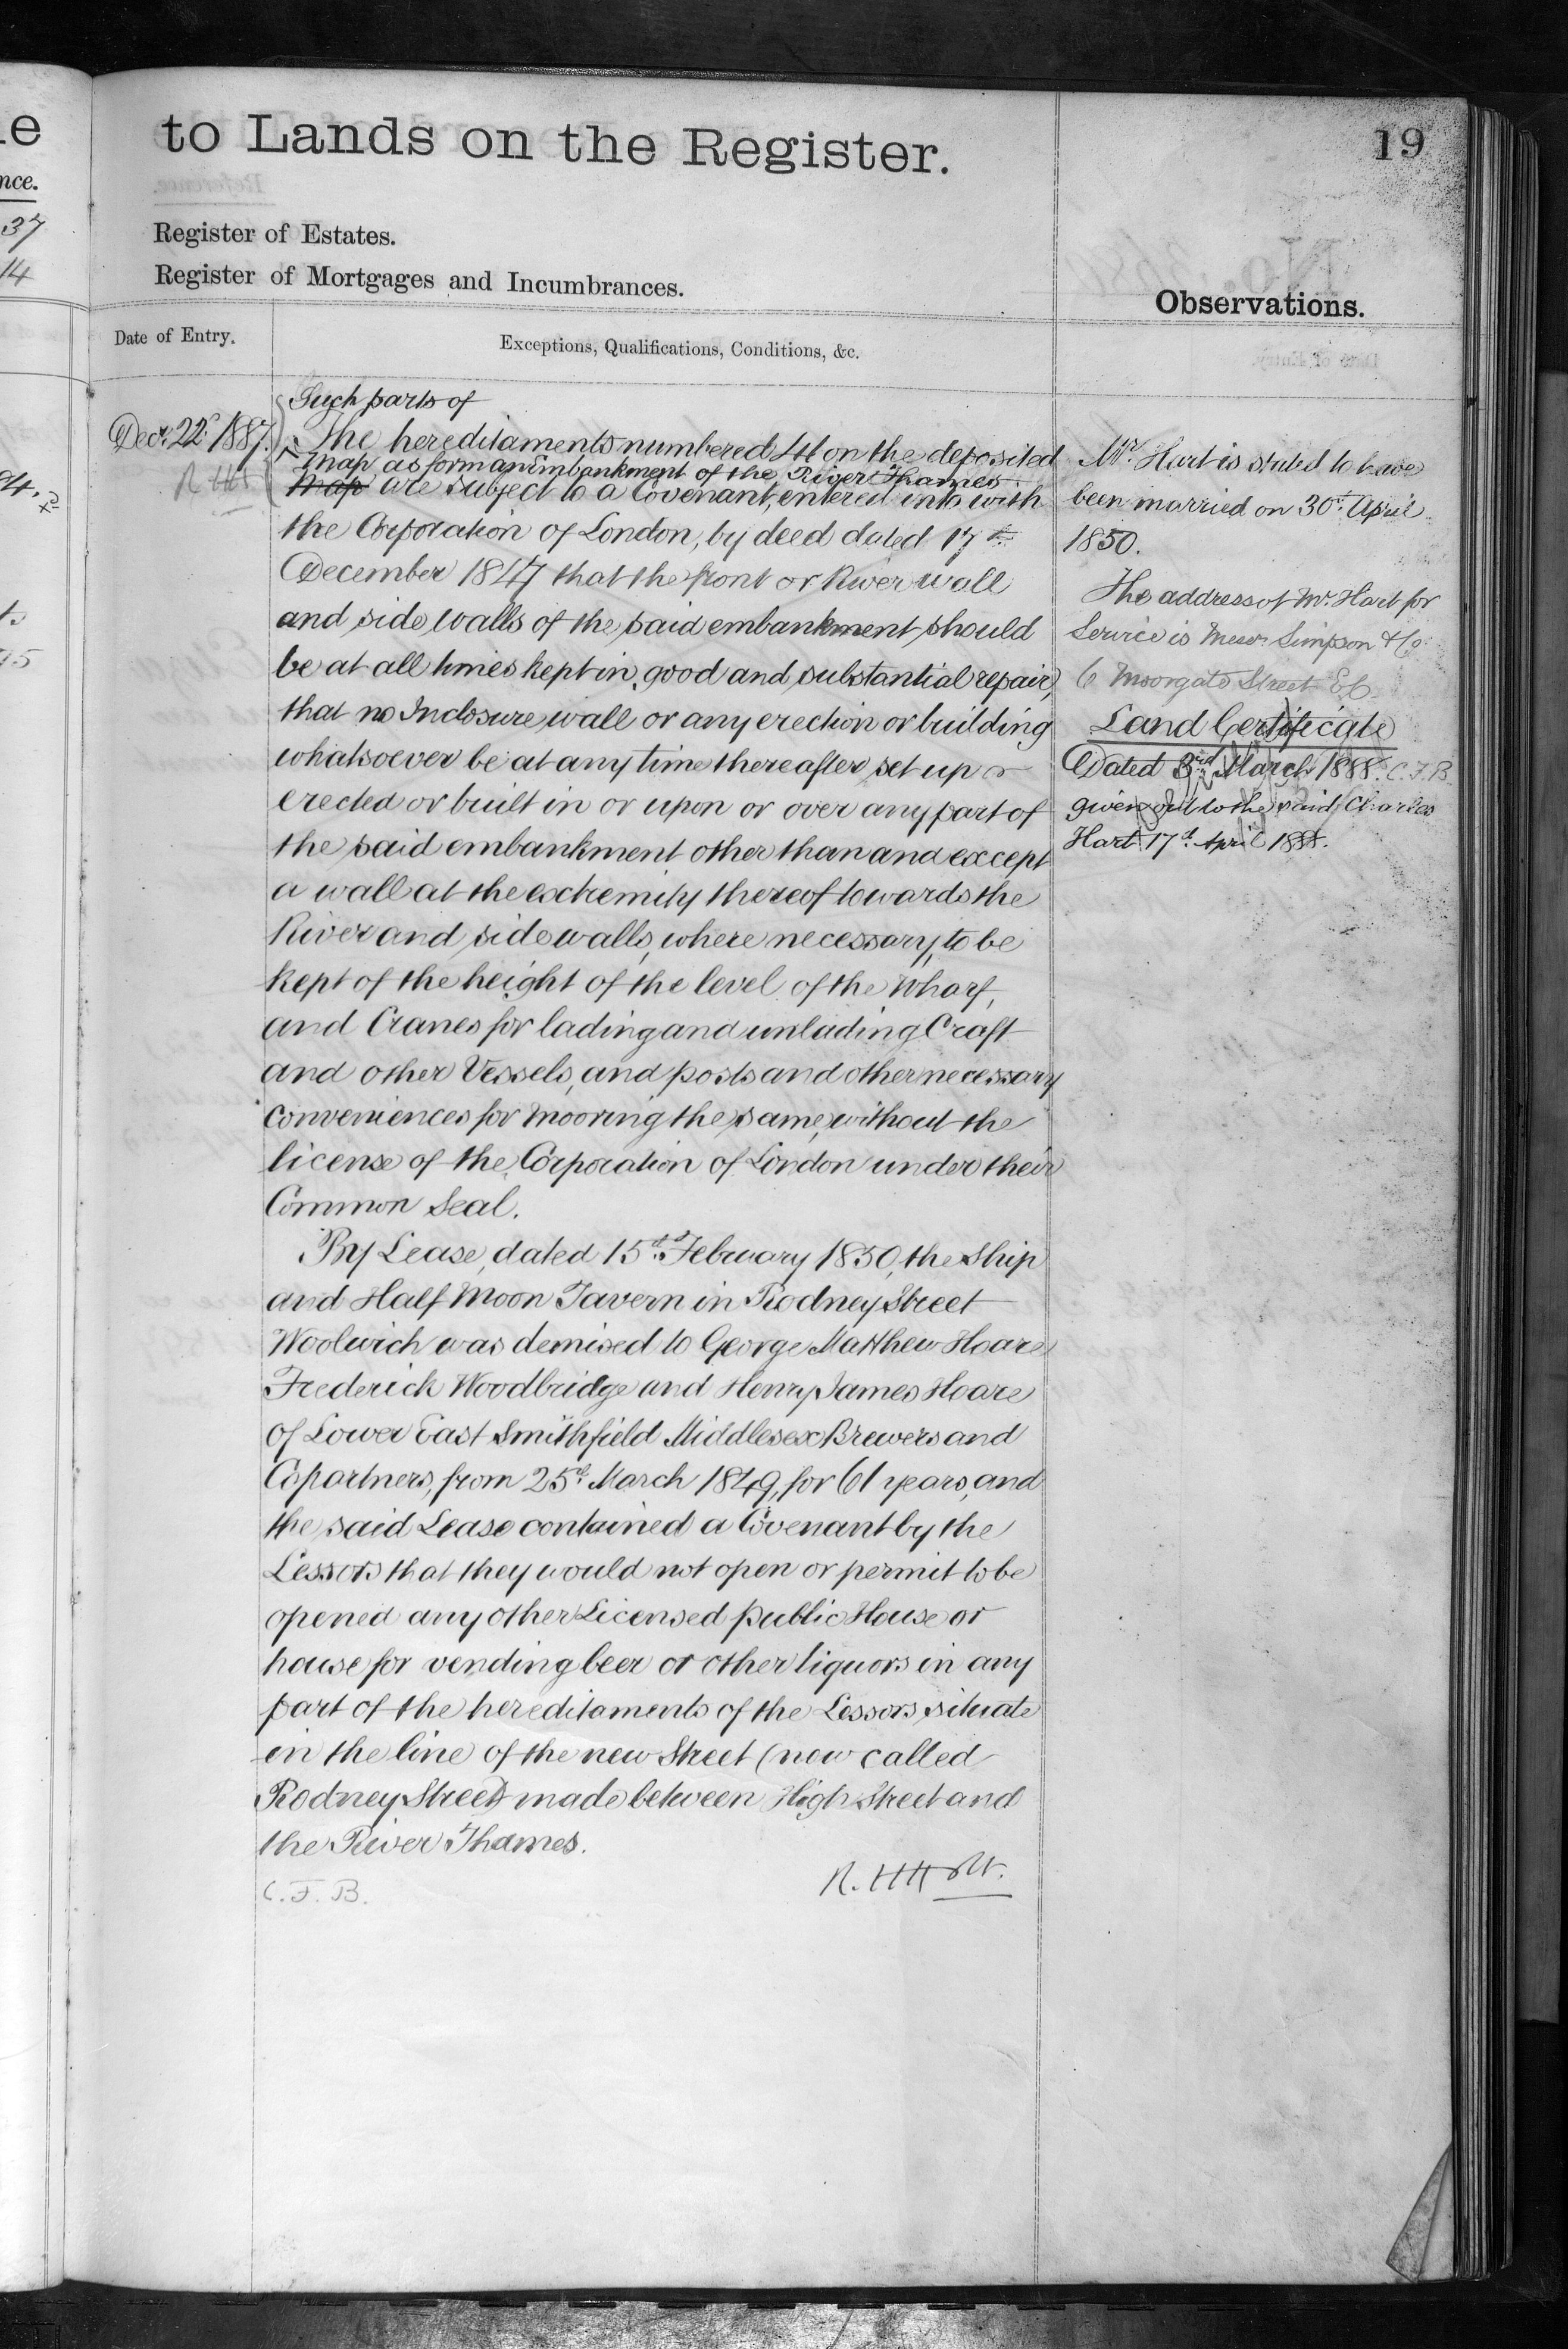 to Lands on the Register.
19
Register of Estates.
Register of Mortgages and Incumbrances.
Observations.
Date of Entry.
Exceptions, Qualifications, Conditions, &c.
Such parts of
Decr. 22d 1887.
The hereditaments numbered 44 on the deposited
map as form an Embankment of the River Thames
map are subject to a Covenant, entered into with
the Corporation of London, by deed dated 17th
December 1847 that the front or River wall
and side walls of the said embankment should
be at all times kept in good and substantial repair,
that no Inclosure wall or any erection or building
whatsoever be at any time thereafter set up or
erected or built in or upon or over any part of
the said embankment other than and except
a wall at the extremity thereof towards the
River and side walls, where necessary, to be
kept of the height of the level of the Wharf,
and Cranes for lading and unlading Craft
and other Vessels, and posts and other necessary
conveniences for mooring the same, without the
license of the Corporation of London under their
Common Seal.
By Lease, dated 15th February 1850, the Ship
and Half Moon Tavern in Rodney Street
Woolwich was demised to George Matthew Hoare
Frederick Woodbridge and Henry James Hoare
of Lower East Smithfield Middlesex Brewers and
Copartners, from 25th March 1849, for 61 years, and
the said Lease contained a Covenant by the
Lessors that they would not open or permit to be
opened any other Licensed public House or
house for vending beer or other liquors in any
part of the hereditaments of the Lessors situate
in the line of the new Street (now called
Rodney Street) made between High Street and
the River Thames.
C. F. B.
R. H Holt.
Mr. Hart is stated to have
been married on 30th April
1850.
The address of Mr. Hart for
Service is Messrs Simpson & Co
6 Moorgate Street E.C.
Land Certificate
Dated 3rd March 1888. C. F. B
given out to the said Charles
Hart 17th April 1888.
37
14